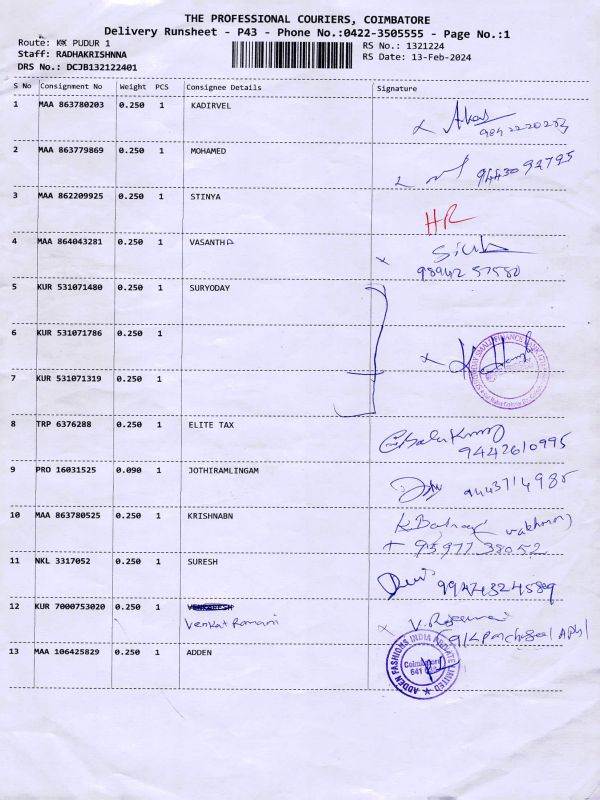 THE PROFESSIONAL COURIERS, COIMBATORE
Delivery Runsheet - P43 - Phone No.:0422-3505555 - Page No.:1
Route: KK PUDUR 1
RS No.: 1321224
Staff: RADHAKRISHNNA
RS Date: 13-Feb-2024
DRS No.: DCJB132122401
S No Consignment No Weight PCS Consignee Details Signature
1 MAA 863780203 0.250 1 KADIRVEL
2 MAA 863779869 0.250 1 MOHAMED
9443092795
3 MAA 862209925 0.250 1 STINYA
HR
4 MAA 864043281 0.250 1 VASANTHA
98942 57580
5 KUR 531071480 0.250 1 SURYODAY
6 KUR 531071786 0.250 1
7 KUR 531071319 0.250 1
8 TRP 6376288 0.250 1 ELITE TAX
9442610995
9 PRO 16031525 0.090 1 JOTHIRAMLINGAM
10 MAA 863780525 0.250 1 KRISHNABN
95977 38052
11 NKL 3317052 0.250 1 SURESH
12 KUR 7000753020 0.250 1
Venkat Ramani
13 MAA 106425829 0.250 1 ADDEN
ADDEN FASHIONS INDIA PRIVATE LIMITED
Coimbatore
641